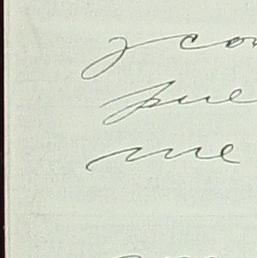 y co
pue
me